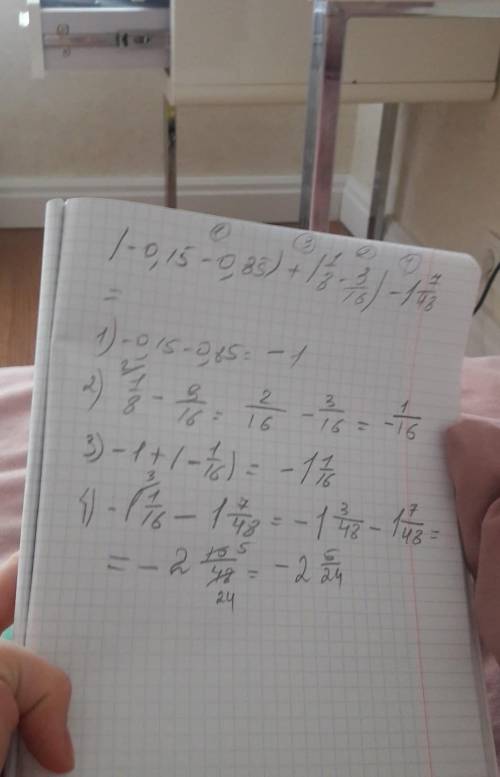 (-0,15-0,85)+(1/8-3/16)-1 7/48
=
1) -0,15-0,85=-1
2) 1/8 - 9/16 = 2/16 - 3/16 = -1/16
3) -1+(-1/16)= -1 1/16
4) -1 1/16 - 1 7/48 = -1 3/48 - 1 7/48 =
= -2 10/48 = -2 5/24